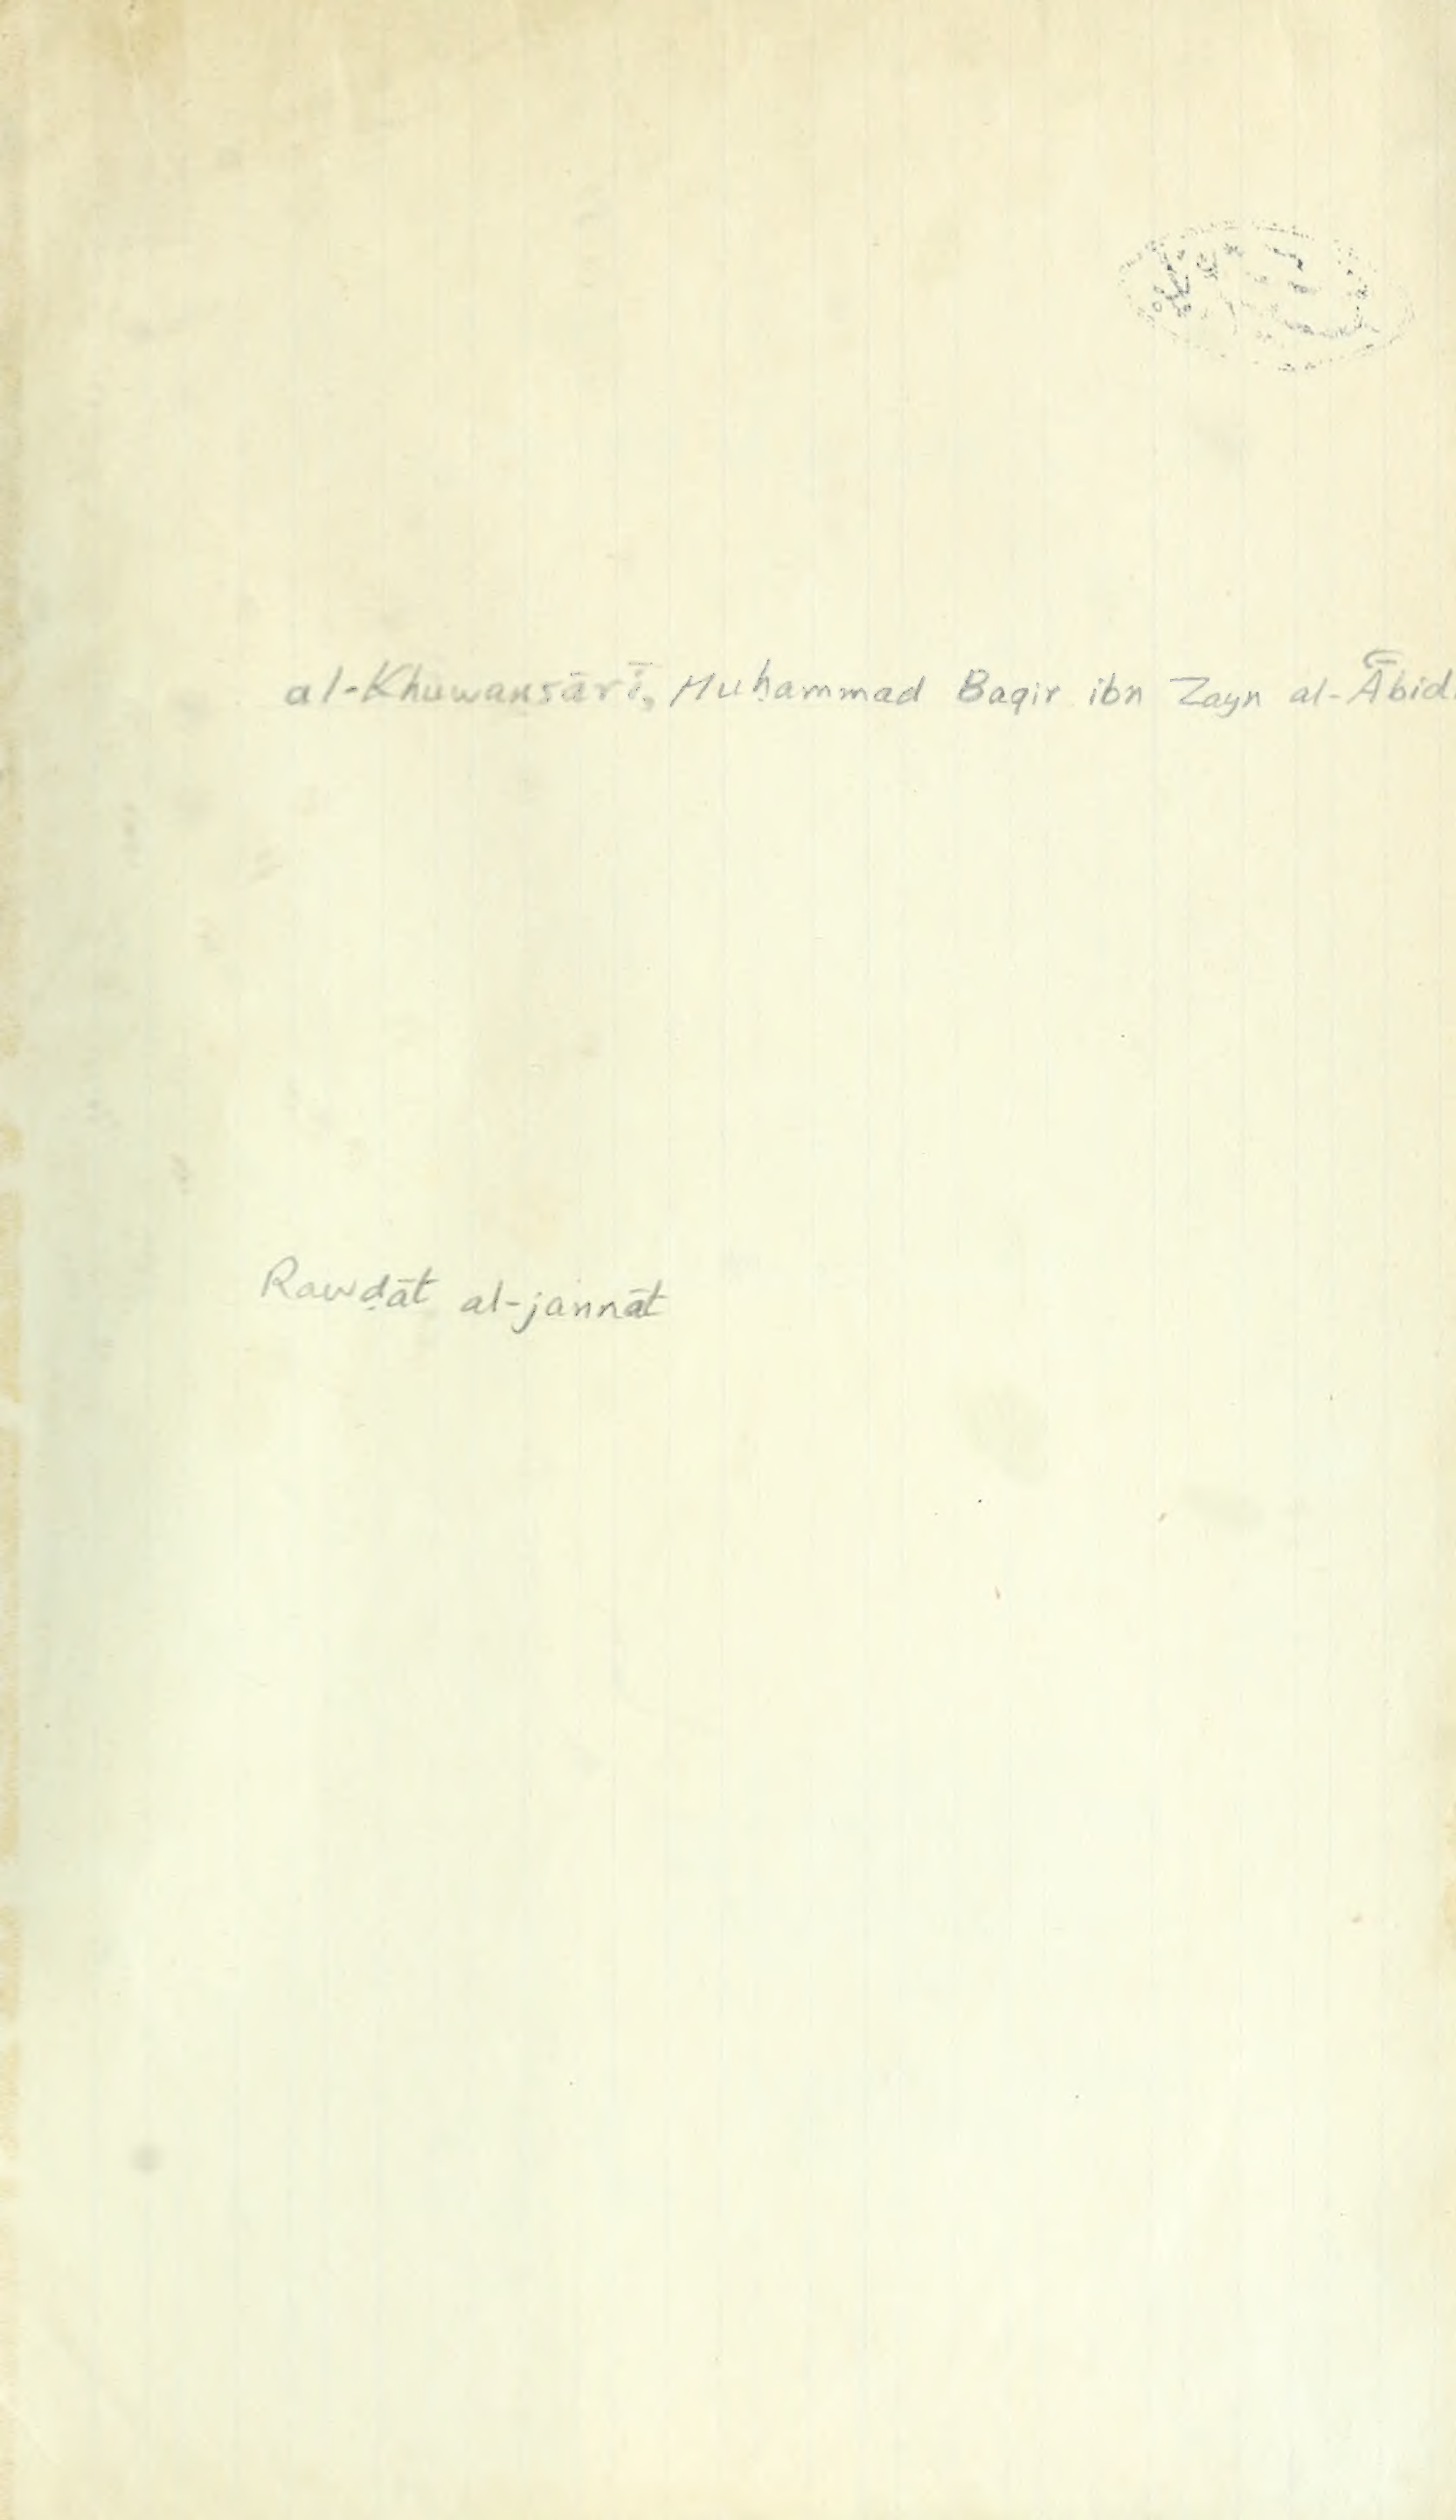 al-Khuwansārī, Muḥammad Baqir ibn Zayn al-Ābid
Rawḍāt al-jannāt